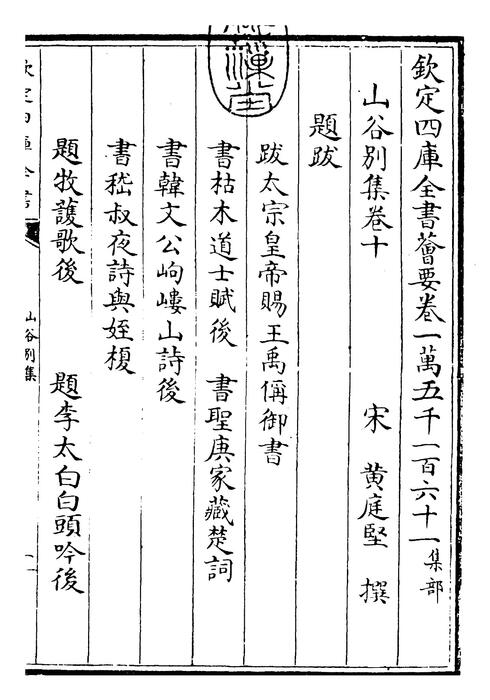 欽定四庫全書薈要卷一萬五千一百六十一集部
山谷別集卷十 宋 黃庭堅 撰
題跋
跋太宗皇帝賜王禹偁御書
書枯木道士賦後 書聖庚家藏楚詞
書韓文公岣嶁山詩後
書嵇叔夜詩與姪榎
題牧護歌後 題李太白白頭吟後
欽定四庫全書
山谷別集